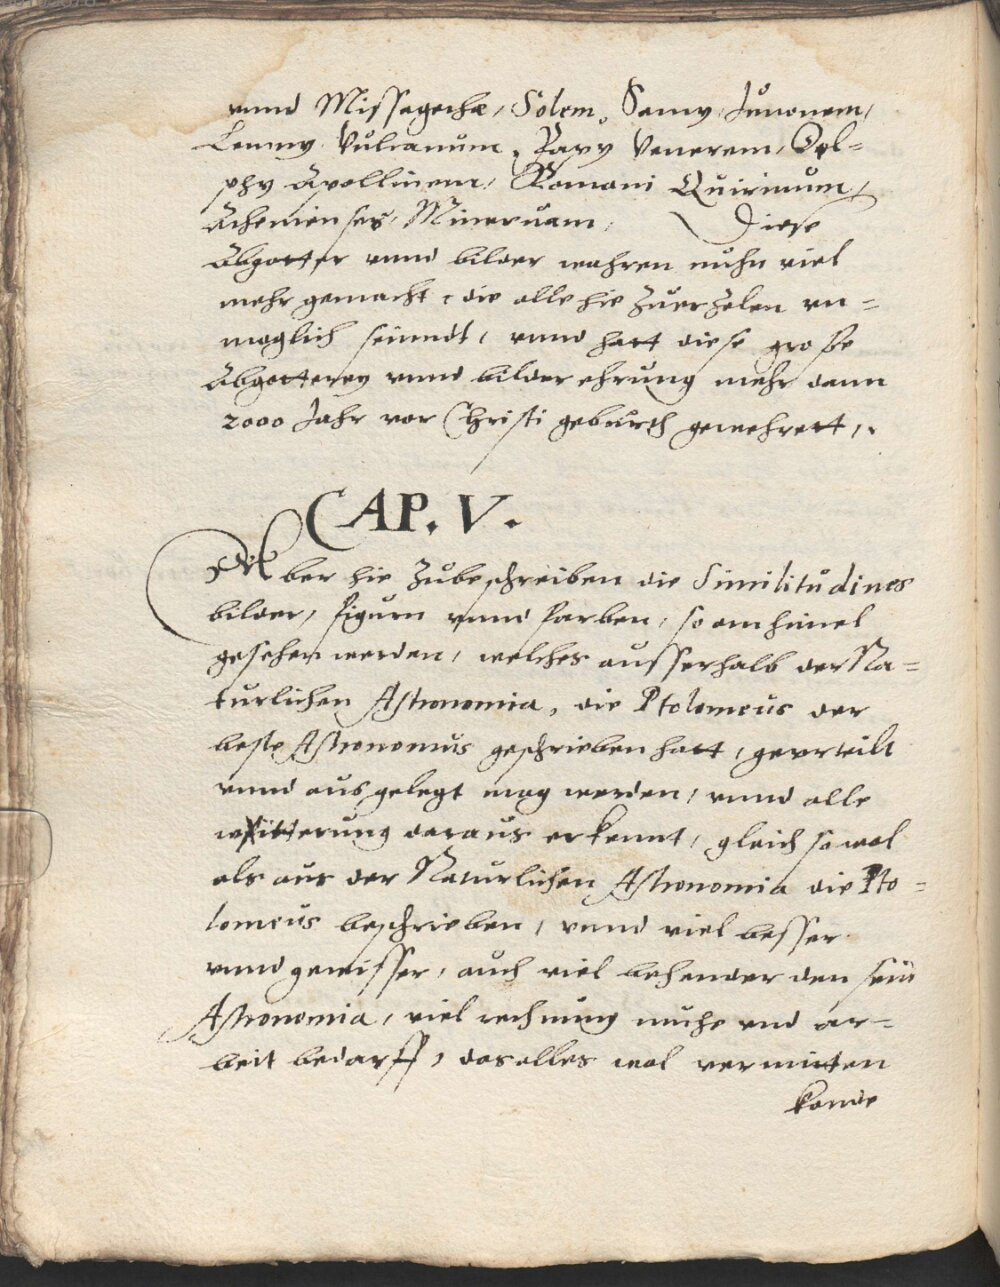 vnnd Missagethæ, Solem, Samy Junonem,
Lemny Vulcanum, Papy Venerem, Del=
phy Apollinem, Romani Quirinum,
Athenienses, Mineruam, Diese
Abgotter vnnd bilder wahren nuhn viel
mehr gemacht, die alle hie zuerzelen vn=
moglich seinndt, vnnd hatt diese große
Abgotterey vnnd bilder ehrung mehr dann
2000 Jahr vor Christi geburth gewehrett,.
CAP. V.
Aber hie zubeschreiben die Similitudines
bilder, figurn vnnd farben, so am himel
gesehen werden, welches ausserhalb der Na=
turlichen Astronomia, die Ptolomeus der
beste Astronomus geschrieben hatt, georteilt
vnnd ausgelegt mag werden, vnnd alle
witterung daraus erkennt, gleich so wol
als aus der Naturlichen Astronomia die Pto=
lomeus beschrieben, vnnd viel besser
vnnd gewisser, auch viel behender den sein
Astronomia, viel rechnung muhe vnd ar=
beit bedarff, das alles wol vermitten
konde